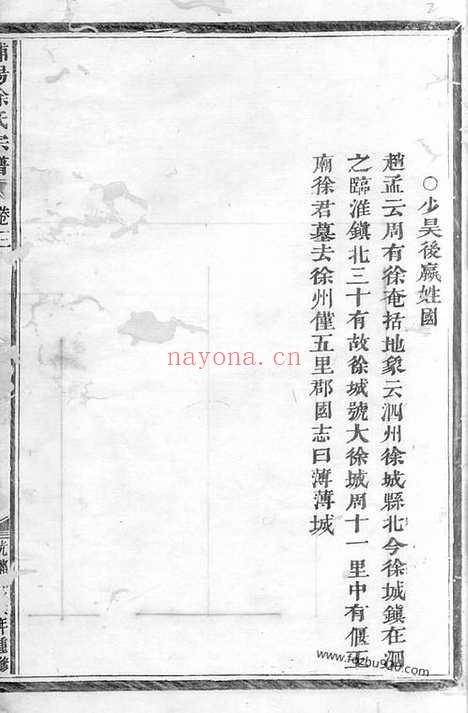 ○少昊後嬴姓國
趙孟云周有徐奄括地象云泗州徐城縣北今徐城鎮在泗
之臨淮鎮北三十有故徐城號大徐城周十一里中有偃王
廟徐君墓去徐州僅五里郡國志曰薄薄城
浦陽徐氏宗譜
卷二
年重修
nayona.cn
www.fgzbu900.com